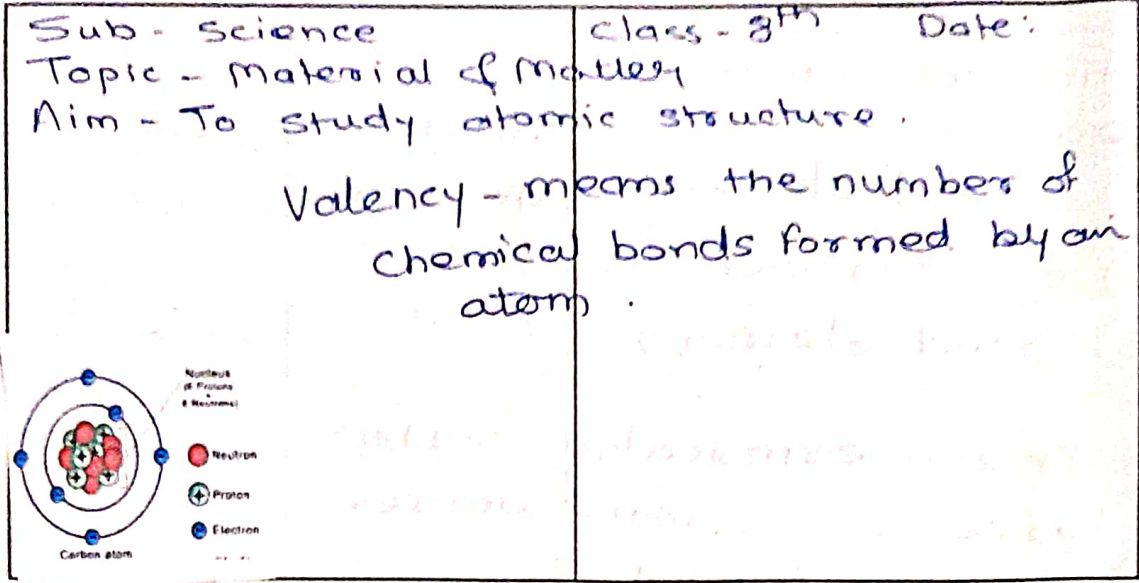 Sub - Science Class - 8th Date:
Topic - Material of Matter
Aim - To study atomic structure.
Valency - means the number of
chemical bonds formed by an
atom.
Nucleus
6 Neutrons)
Neutron
Proton
Electron
Carbon atom